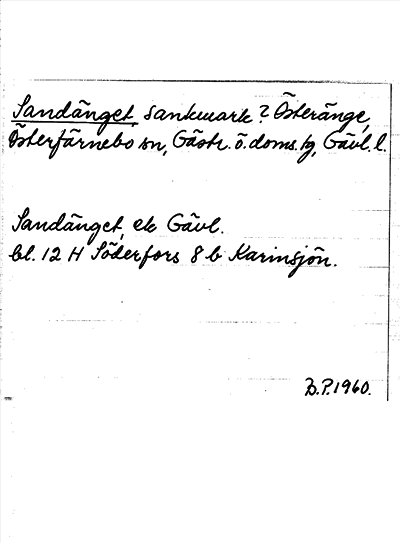 Sandänget, sankmark? Österänge,
Österfärnebo sn, Gästr. ö. doms. tg, Gävl. l.
Sandänget, ek Gävl.
bl. 12 H Söderfors 8 b Karinsjön.
B.P. 1960.